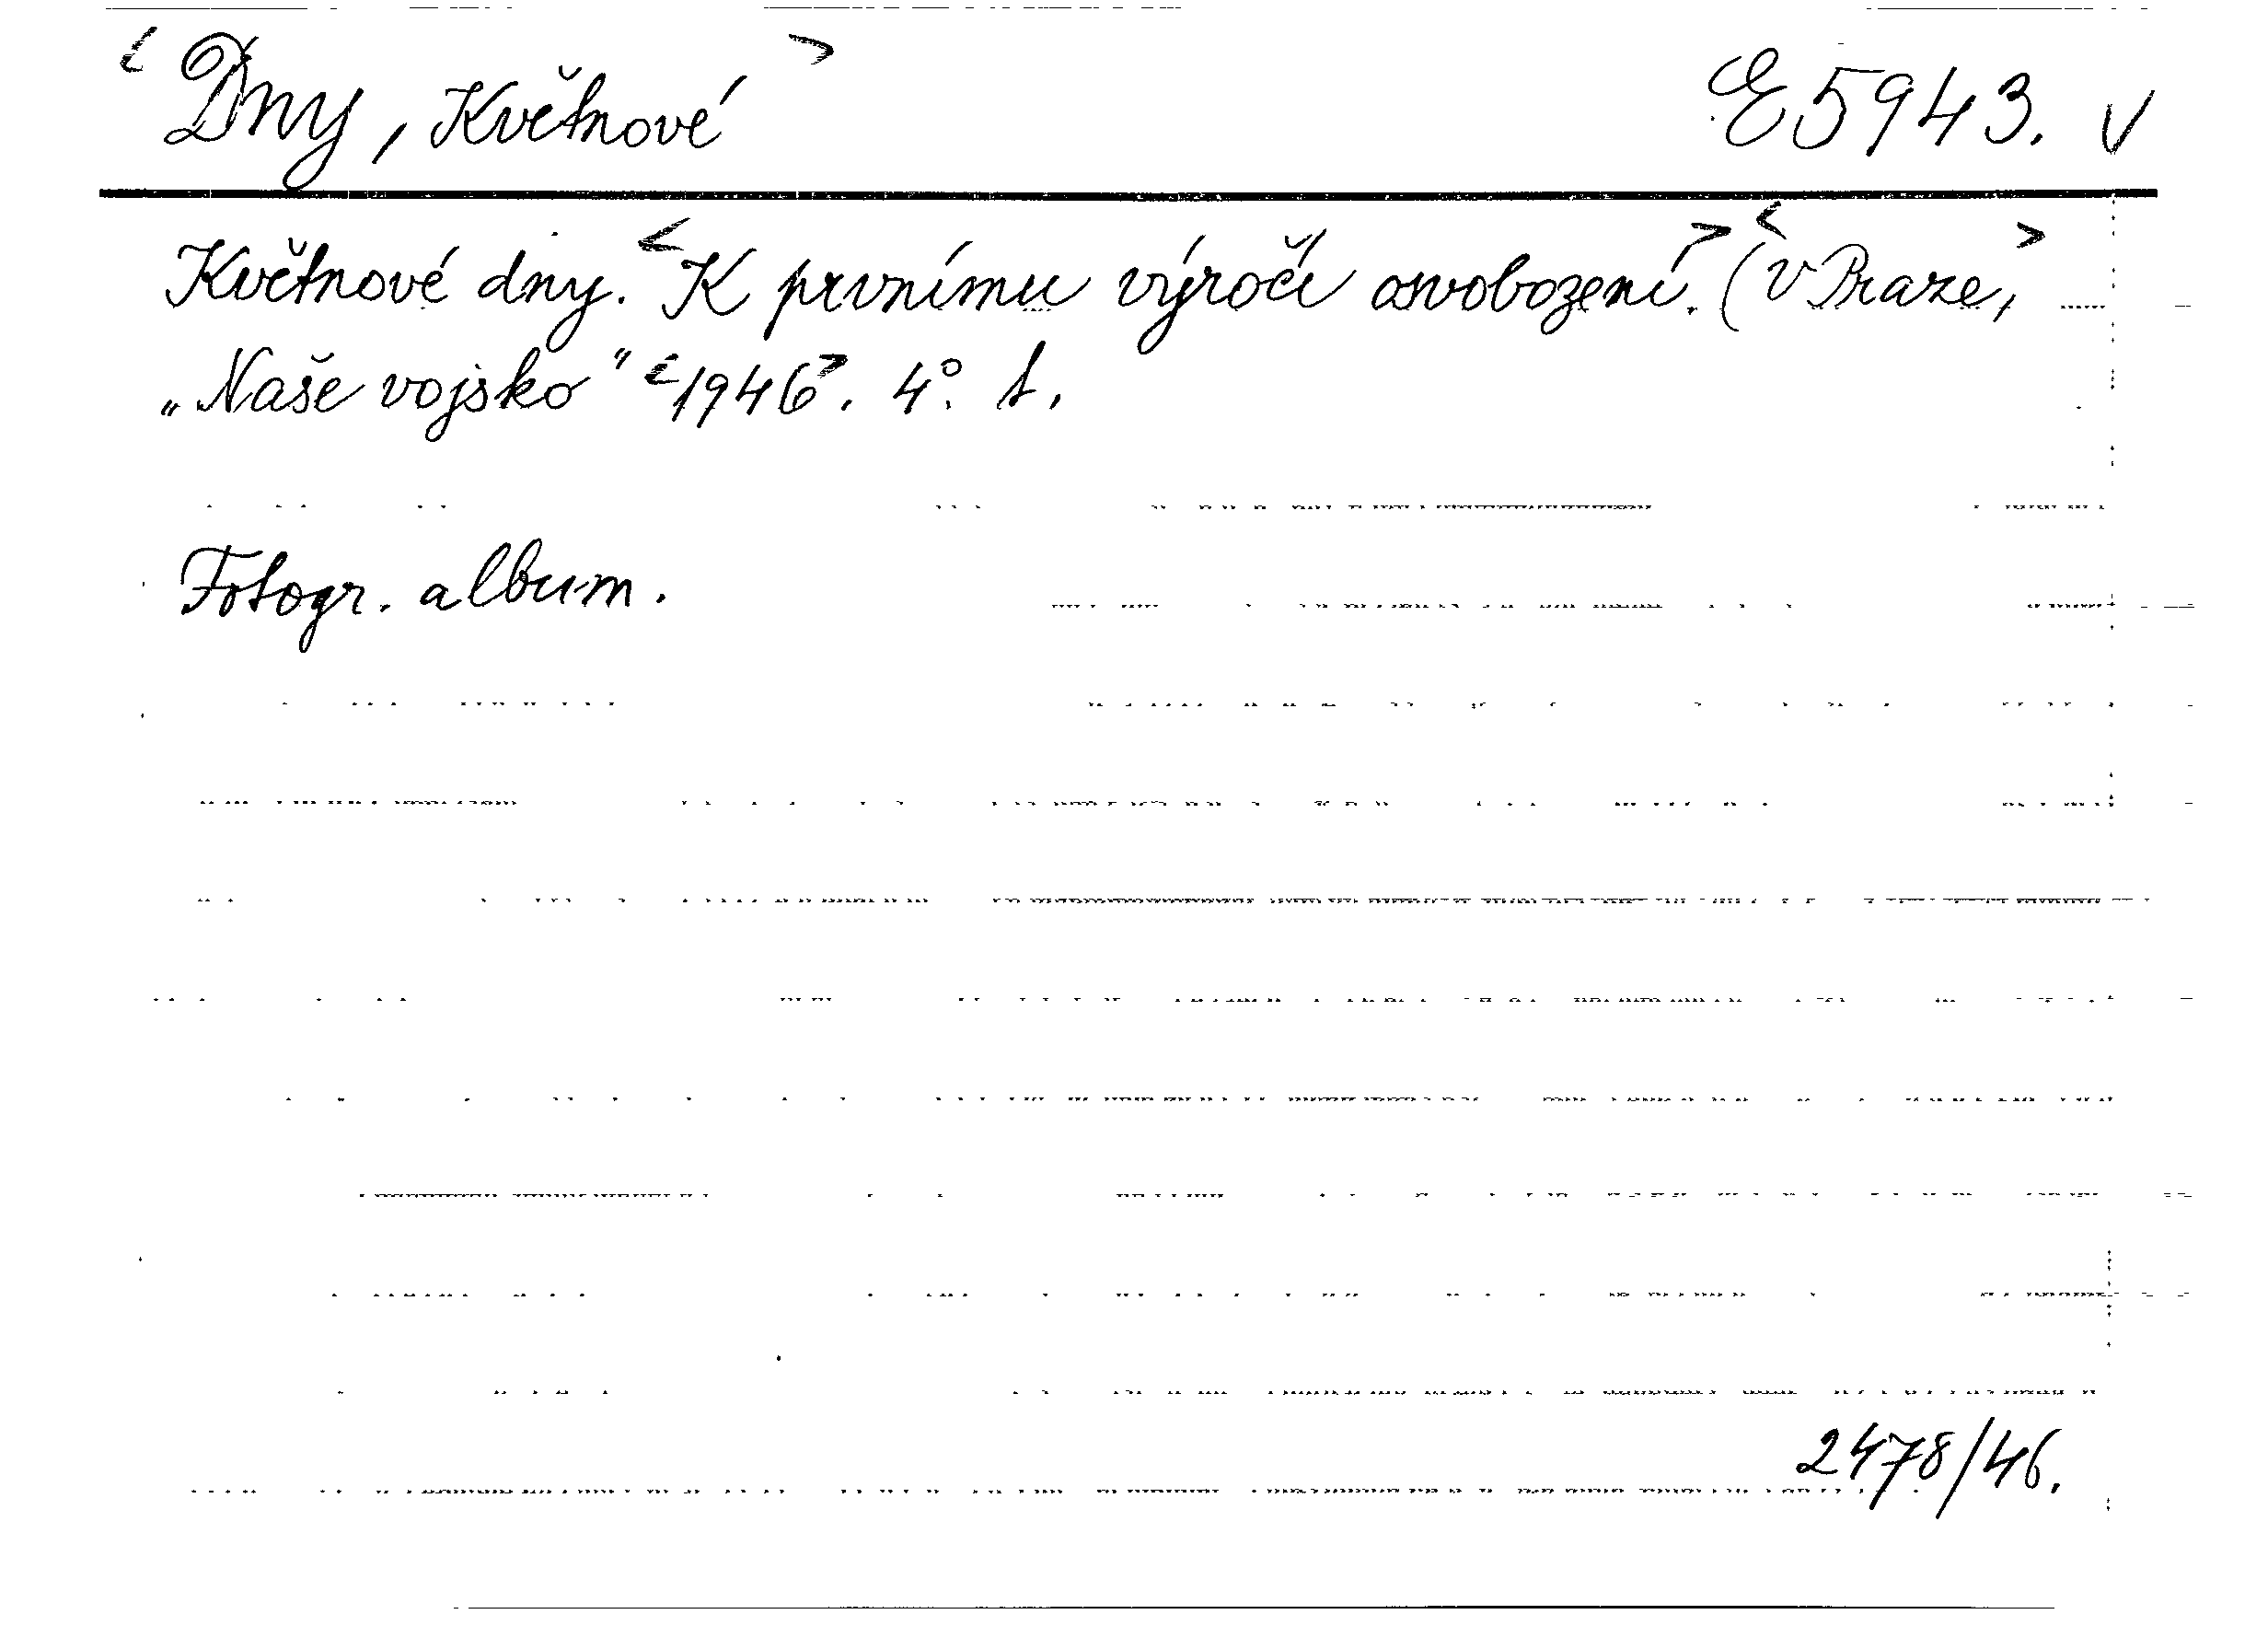 <Dny, Květnové> E 5943. V
Květnové dny. <K prvnímu výročí osvobození.> (<v Praze,>
„Naše vojsko" <1946>. 4°. t.
Fotogr. album.
2478/46.